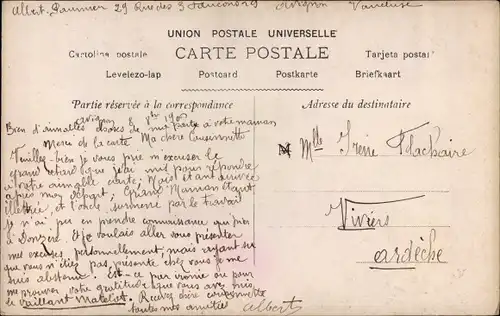 Albert Saumier 29 Rue des 3 Faucons 29 Avignon Vaucluse
UNION POSTALE UNIVERSELLE
CARTE POSTALE
Cartolina postale
Tarjeta postal
Levelezo-lap Postcard Postkarte Briefkaart
Partie réservée à la correspondance
Adresse du destinataire
Avignon 8
Bien d'aimables choses de ma part à votre maman
Merci de la carte Ma chère Cousinette
Veuillez bien je vous prie m'excuser le
grand retard que j'ai mis pour répondre
à votre aimable carte. Mais étant arrivée
après mon départ, Grand Maman étant
illettrée, et l'oncle surmené par le travail
je n'ai pu en prendre connaissance qu'hier
à Donzère. Et je voulais aller vous présenter
mes excuses personnellement, mais sachant
que vous n'étiez pas présente chez vous je me
suis abstenu. Est-ce par ironie ou pour
me prouver votre gratitude que vous avez mis
le vaillant Matelot. Recevez chère cousinette
toutes mes amitiés Albert
Mlle Irène
Viviers
ardèche